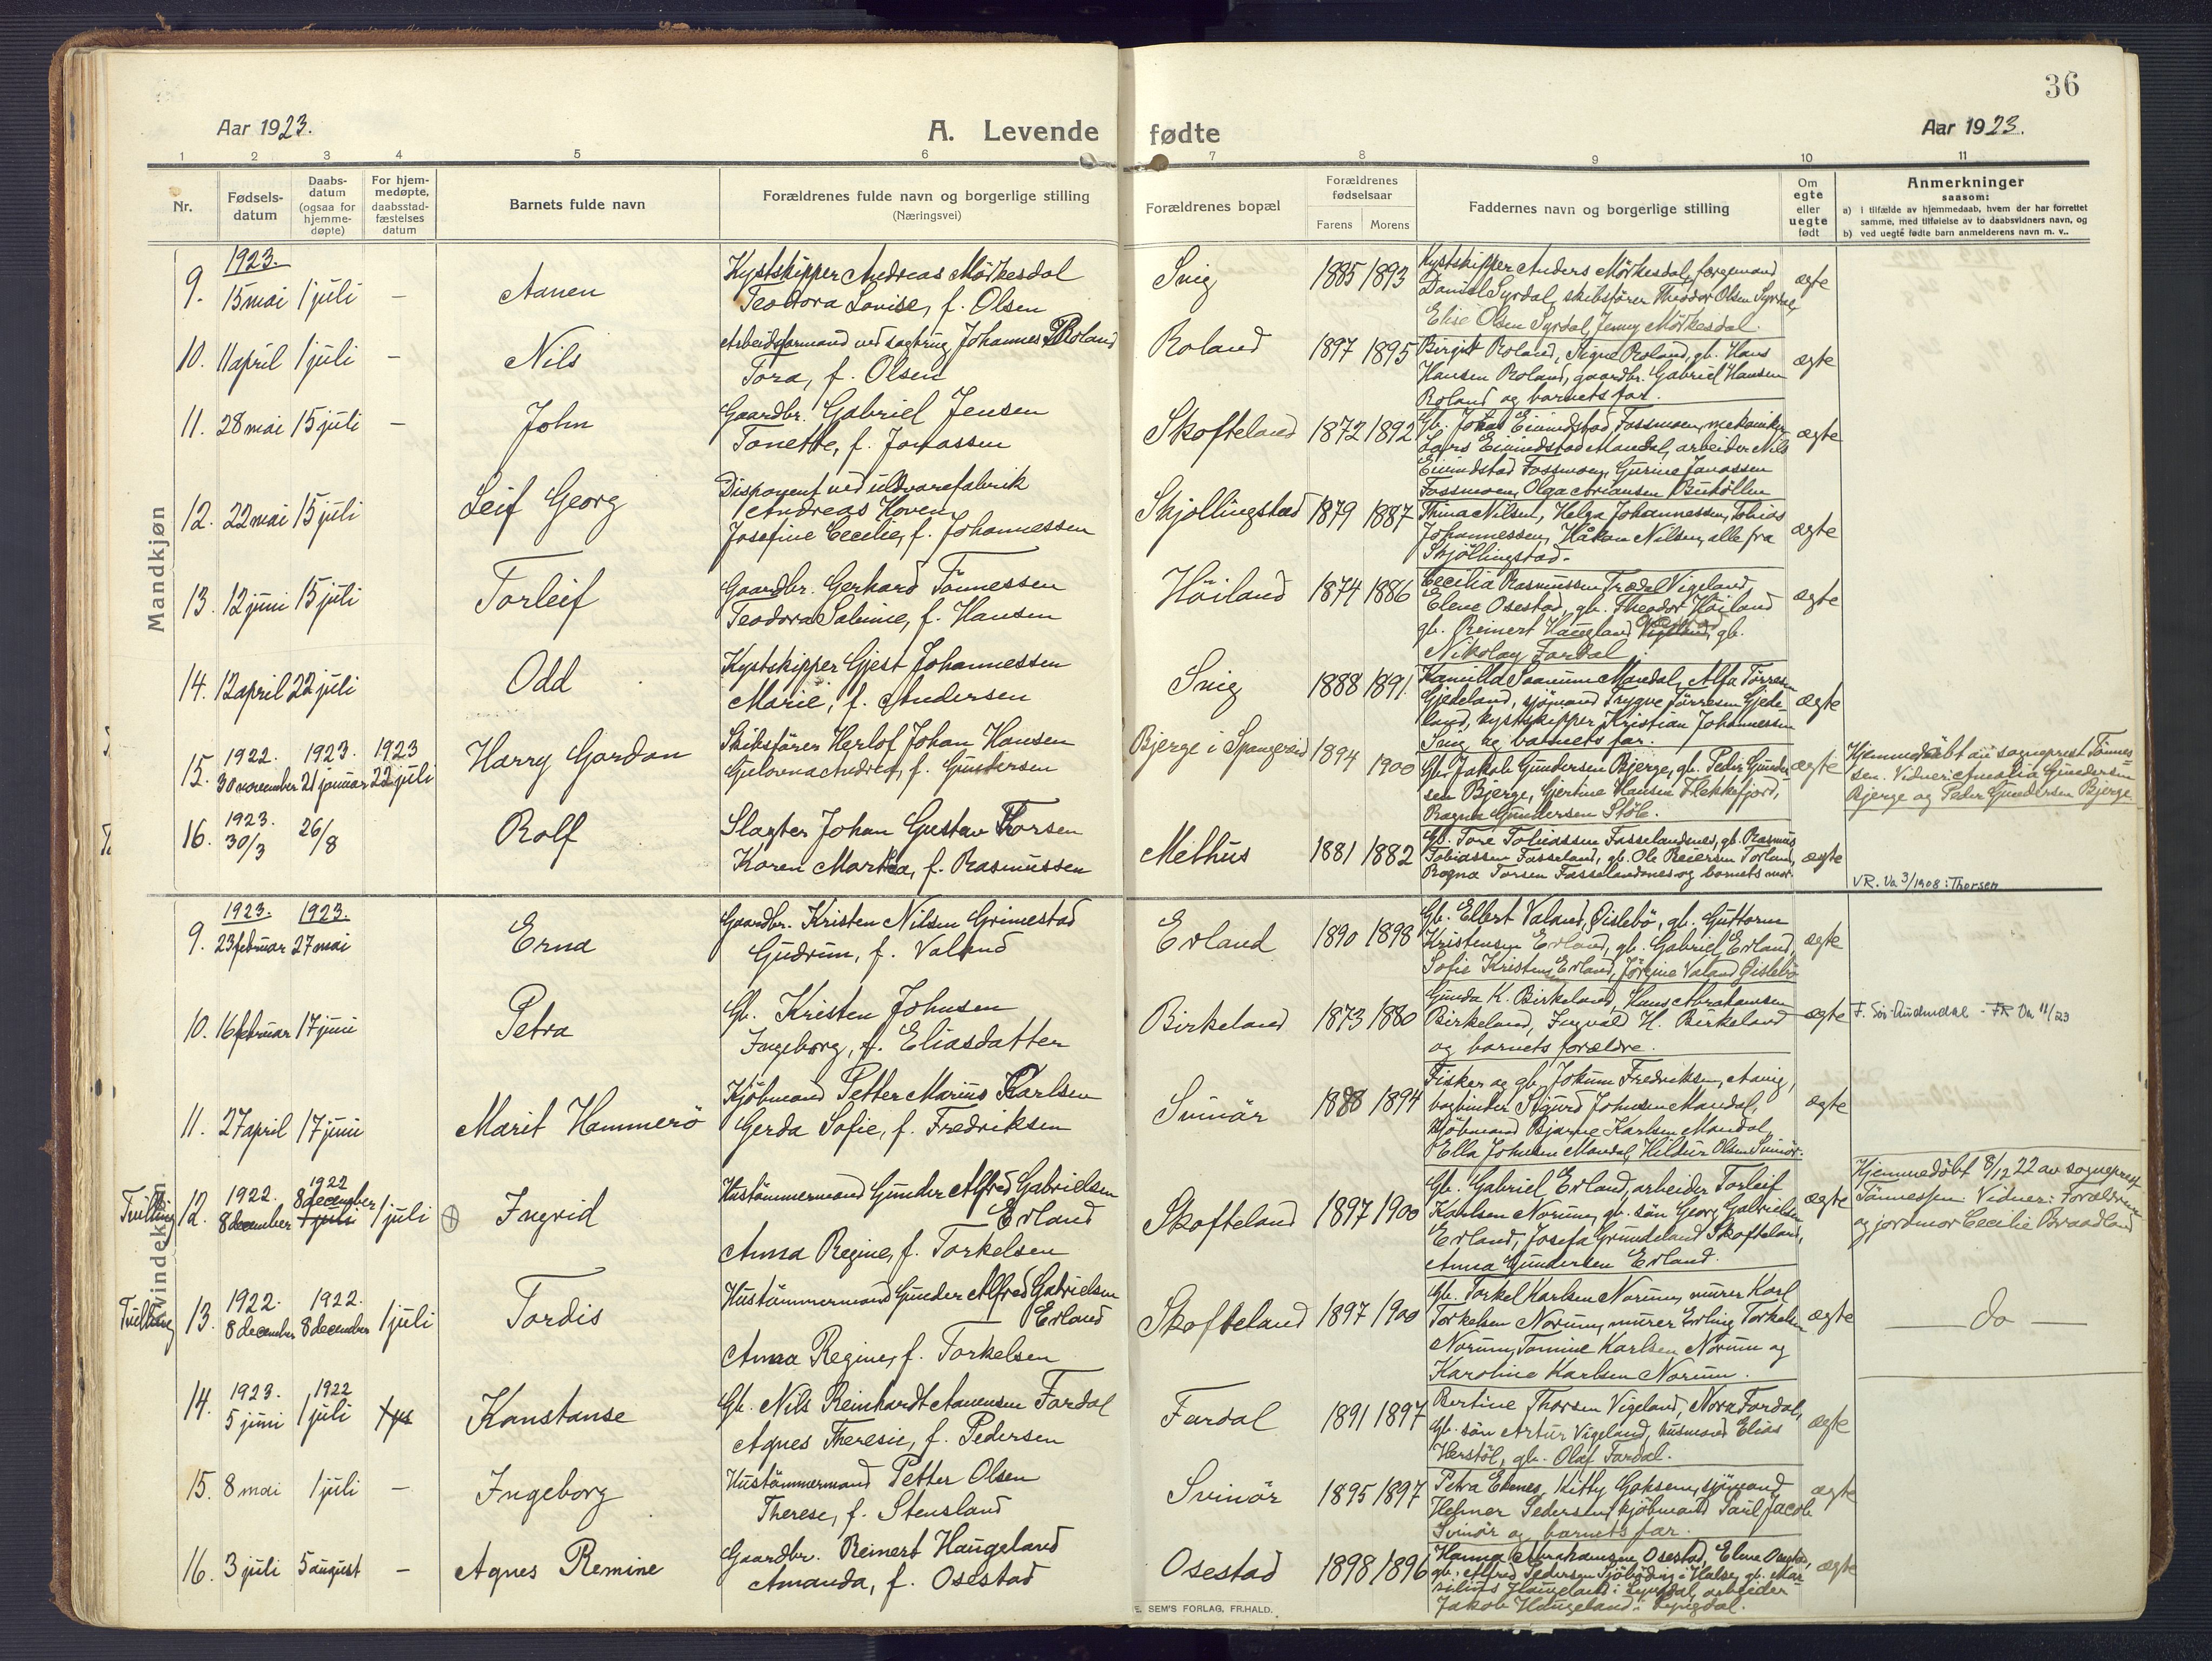 36
Aar 1923.
A. Levende fødte
Aar 1923.
1 2 3 4 5 6 7 8 9 10 11
Nr.
Fødsels-
datum
Daabs-
datum
(ogsaa for
hjemme-
døpte)
For hjem-
medøpte,
daabsstad-
fæstelses
datum
Barnets fulde navn
Forældrenes fulde navn og borgerlige stilling
(Næringsvei)
Forældrenes bopæl
Forældrenes
fødselsaar
Farens Morens
Faddernes navn og borgerlige stilling
Om
egte
eller
uegte
født
Anmerkninger
saasom:
a) i tilfælde av hjemmedaab, hvem der har forrettet
samme, med tilføielse av to daabsvidners navn, og
b) ved uegte fødte barn anmelderens navn m. v..
Mandkjøn
1923.
9. 15 mai 1 juli – Aanen
Kystskipper Andreas Mörkesdal
Teodora Lovise, f. Olsen
Snig 1885 1893
Kystskipper Anders Mörkesdal, færgemand
Daniel Syrdal, skibsfører Theodor Olsen Syrdal,
Elise Olsen Syrdal, Jenny Mörkesdal.
ægte
10. 11 april 1 juli – Nils
Arbeidsformand ved sagbrug Johannes Roland
Tora, f. Olsen
Roland 1897 1895
Birgit Roland, Signe Roland, gb. Hans
Hansen Roland, gaardbr. Gabriel Hansen
Roland og barnets far.
ægte
11. 28 mai 15 juli – John
Gaardbr. Gabriel Jensen
Tonette, f. Jonassen
Skofteland 1872 1892
Gb. Johan Eimindstad, Fossmoen, mekaniker
Lars Eimindstad Mandal, arbeider Nils
Eimindstad Fossmoen, Gurine Jonassen
Fossmoen, Olga Ariansen
ægte
12. 22 mai 15 juli Leif Georg
Disponent ved uldvarefabrik
Andreas Hoven
Josefine Cecilie, f. Johannessen
Skjøllingstad 1879 1887
Thina Nilsen, Helga Johannessen, Tobias
Johannessen, Håkon Nilsen, alle fra
Skjöllingstad.
ægte
13. 12 juni 15 juli Torleif
Gaardbr. Gerhard Tönnessen
Teodora Sabine, f. Hansen
Höiland 1874 1886
Cecilia Rasmussen Trædal Vigeland,
Elene Osestad, gb. Theodor Höiland
gb. Reinert Haugland gb.
Nikolay Fardal
ægte
14. 12 april 22 juli Odd
Kystskipper Gjest Johannessen
Marie, f. Andersen
Snig 1888 1891.
Kamilla Saanum Mandal, Alfa Törresen
Gjedeland, sjømand Trygve Törresen Gjede-
land, kystskipper Kristian Johannessen
Snig og barnets far.
ægte
1922. 1923. 1923
15. 30 november 21 januar 22 juli Harry Gordon
Skibsfører Herlof Johan Hansen
Gulovna Andrea, f. Gundersen
Bjerge i Spangereid 1894 1900
Gb. Jakob Gundersen Bjerge, gb. Peder Gunder-
sen Bjerge, Gertine Hansen Flekkefjord,
Ragna Gundersen Stöb.
ægte
Hjemmedöbt av sogneprest Tönnes-
sen. Vidner: Amalia Gundersen
Bjerge og Peder Gundersen Bjerge
1923.
16. 30/3 26/8 Rolf
Slagter Johan Gustav Torsen
Karen Martha, f. Rasmussen
Methus 1881 1882
Gb. Tore Tobiassen Fasselandsnes, gb. Rasmus
Tobiassen Fasseland, gb. Ole Reiersen
Ragna Torsen Fasselandsnes og barnets mor.
ægte
VR. Va 3/1908: Thorsen
Kvindekjøn
1923. 1923.
9. 23 februar 27 mai Erna
Gaardbr. Kristen Nilsen Grimestad
Gudrun, f. Valand
Erland 1890 1898
Gb. Elbert Valand, Öislebö, gb. Guttorm
Kristensen Erland, gb. Gabriel Erland,
Sofie Kristensen Erland, Jörgine Valand Öislebö
ægte
10. 16 februar 17 juni Petra
Gb. Kristen Johnsen
Ingeborg, f. Eliasdatter
Birkeland 1873 1880
Gunda K. Birkeland, Hans Abrahamsen
Birkeland, Ingvald H. Birkeland
og barnets forældre.
ægte
F. Sör-Audnedal - FR Da 11/23
11. 27 april 17 juni Marit Hammerö
Kjöbmand Petter Marius Karlsen
Gerda Sofie, f. Fredriksen
Svinör 1888 1894
Fisker og gb. Jokum Fredriksen, Aavig,
bogbinder Sigurd Johnsen Mandal,
kjöbmand Bjarne Karlsen Mandal,
Ella Johnsen Mandal, Hildur Olsen Svinör.
ægte
Tvilling
1922. 1922
12. 8 december 8 december 1 juli 1 juli Ingrid
Hustömmermand Gunder Alfred Gabrielsen
Erland
Anna Regine, f. Torkelsen
Skofteland 1897 1900
Gb. Gabriel Erland, arbeider Torleif
Karlsen Norum, gb. sön Georg Gabrielsen
Erland, Josefa Grundeland Skofteland,
Anna Gundersen Erland.
ægte
Hjemmedöbt 8/12 22 av sogneprest
Tönnessen. Vidner: Forældrene
og jordmor Cecilie Braadland
Tvilling
1922. 1922.
13. 8 december 8 december 1 juli Tordis
Hustömmermand Gunder Alfred Gabrielsen
Erland
Anna Regine, f. Torkelsen
Skofteland 1897 1900
Gb. Torkel Karlsen Norum, murer Karl
Torkelsen Norum, murer Erling Torkelsen
Norum, Tomine Karlsen Norum og
Karoline Karlsen Norum.
ægte
— do —
1923. 1922
14. 5 juni 1 juli Konstanse
Gb. Nils Reinhardt Aanensen Fardal
Agnes Theresie, f. Pedersen
Fardal 1891 1897
Bertine Thorsen Vigeland, Nora Fardal,
Gb. sön Artur Vigeland, husmand Elias
Herstöl, gb. Olaf Fardal.
ægte
15. 8 mai 1 juli – Ingeborg
Hustömmermand Petter Olsen
Therese, f. Stensland
Svinör 1895 1897
Petra Ebnes, Kitty Gaksen, sjömand
Helmer Pedersen, kjöbmand Paul Jacob
Svinör og barnets far.
ægte
16. 3 juli 5 august – Agnes Remine
Gaardbr. Reinert Haugeland
Amanda, f. Osestad
Osestad 1898 1896
Hanna Abrahamsen Osestad, Elene Osestad,
gb. Alfred Pedersen i Halse, gb. Mar-
selius Haugeland i Lyngdal, arbeider
Jakob Haugeland i Lyngdal.
ægte
E. SEM'S FORLAG, FR.HALD.